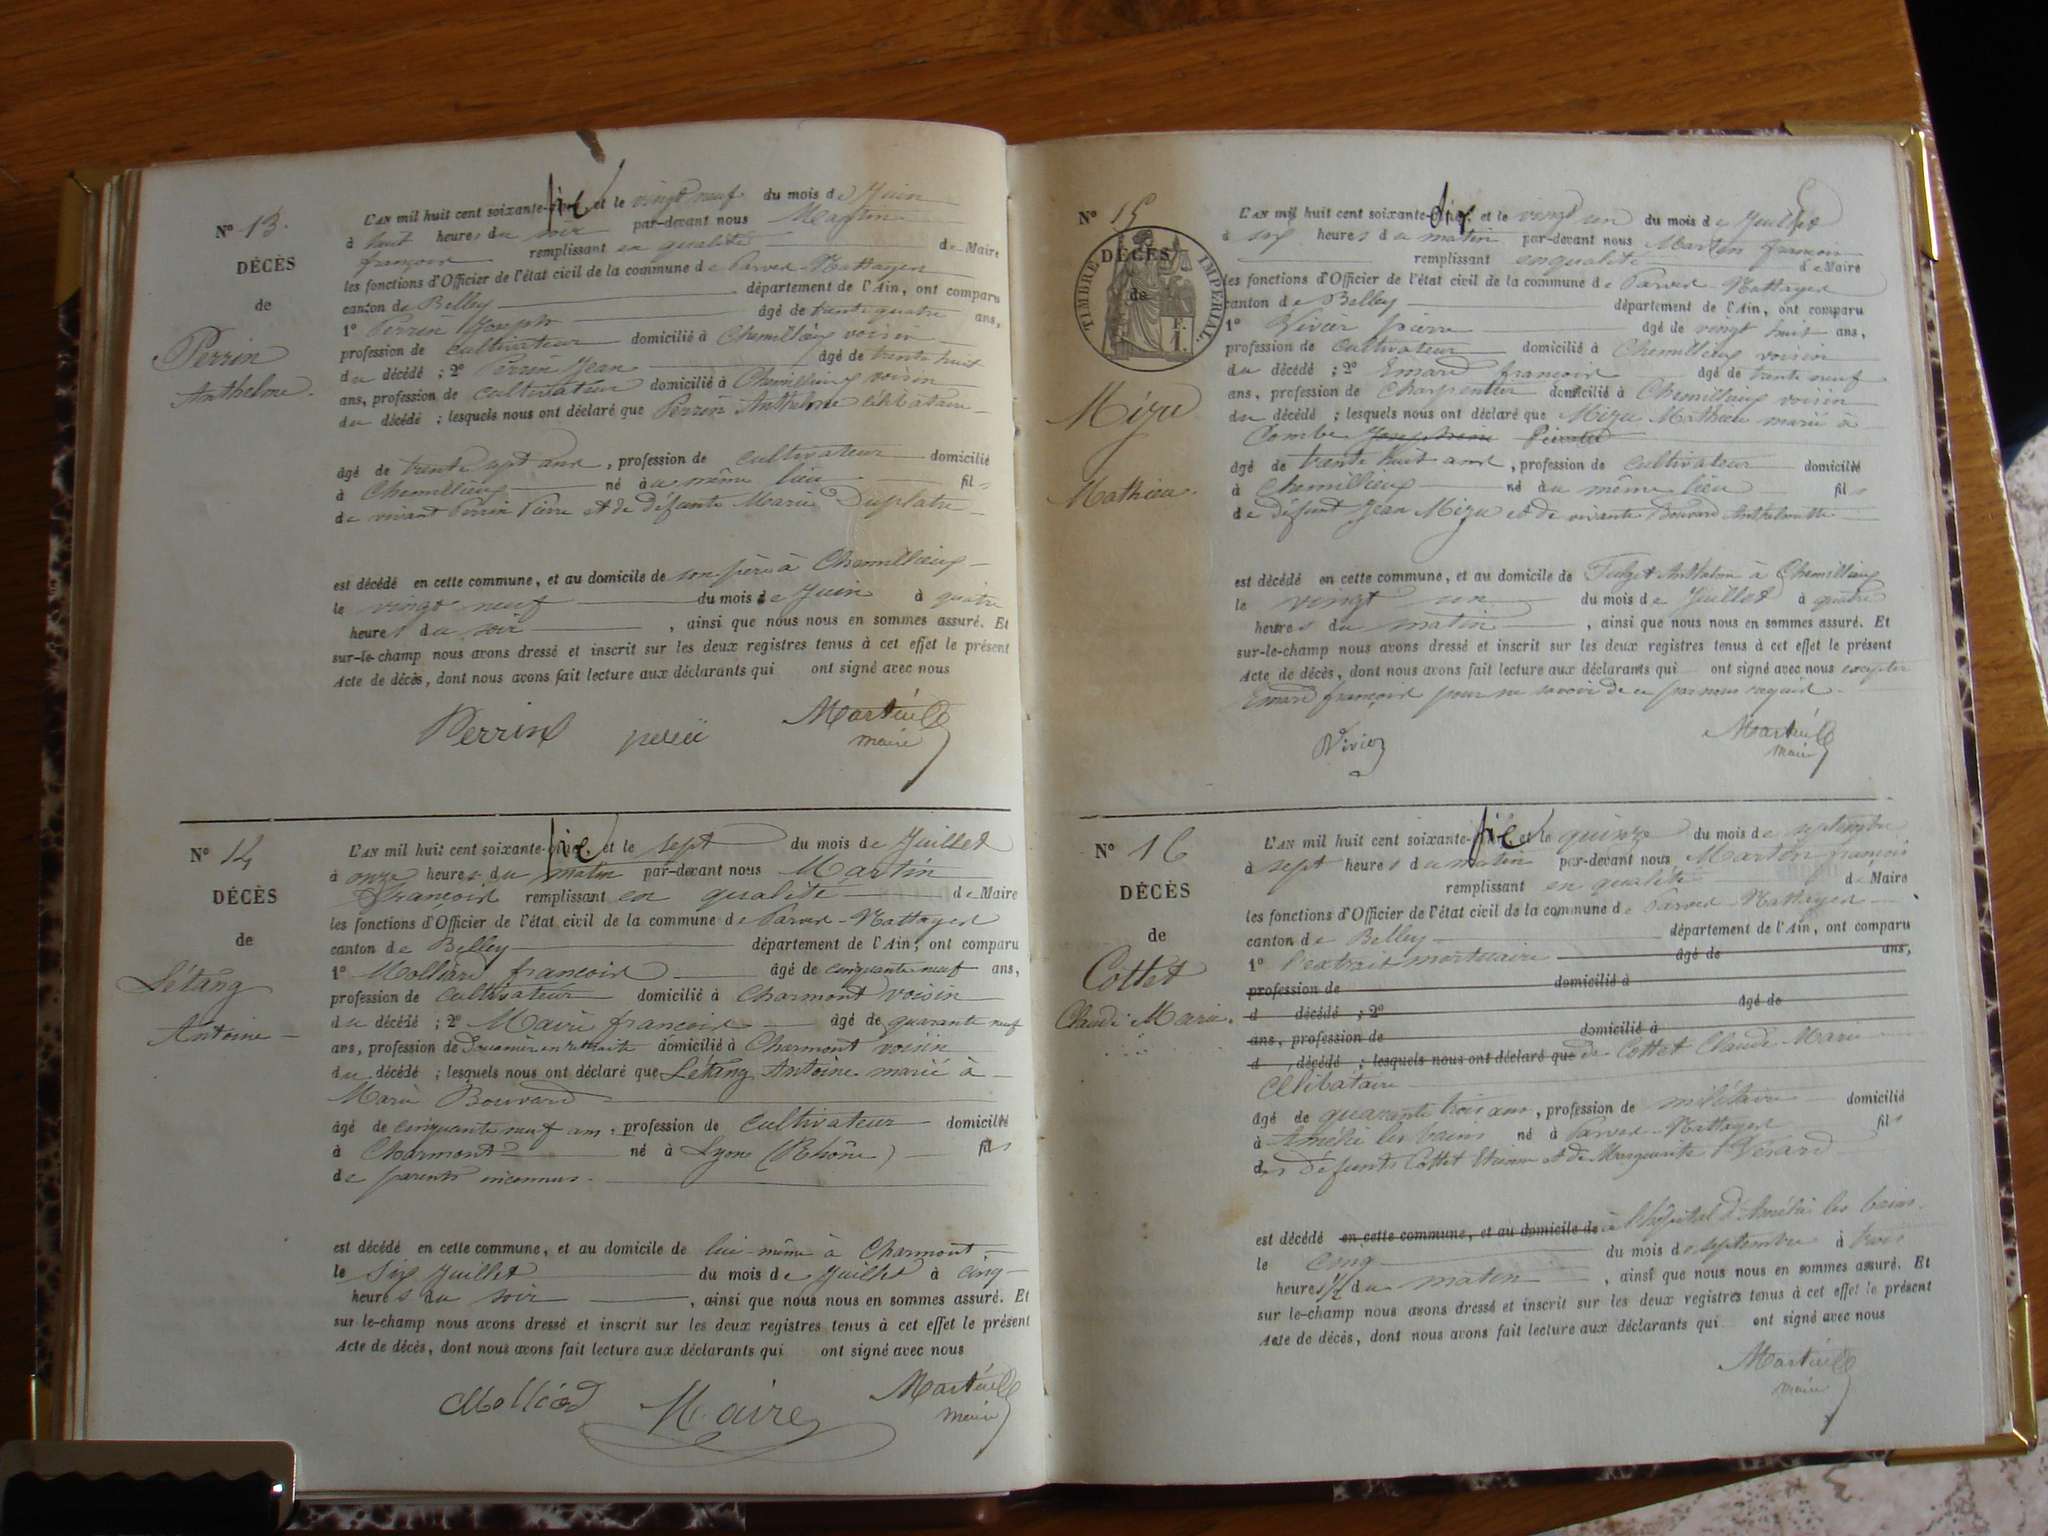 N° 13.
DÉCÈS
de
Perrin
Anthelme.
L'AN mil huit cent soixante-dix et le vingt neuf du mois de Juin
à huit heures du soir par-devant nous Martin
françois remplissant en qualité de Maire
les fonctions d'Officier de l'état civil de la commune de Parves-Nattages
canton de Belley département de l'Ain, ont comparu
1° Perrin Joseph âgé de trente quatre ans,
profession de cultivateur domicilié à Chemillieux voisin
du décédé ; 2° Perrin Jean âgé de trente huit
ans, profession de cultivateur domicilié à Chemillieux voisin
du décédé ; lesquels nous ont déclaré que Perrin Anthelme célibataire
âgé de trente sept ans, profession de cultivateur domicilié
à Chemillieux né au même lieu fils
de vivant Perrin Pierre et de défunte Marie Duplatre
est décédé en cette commune, et au domicile de son père à Chemillieux
le vingt neuf du mois de Juin à quatre
heures du soir, ainsi que nous nous en sommes assuré. Et
sur-le-champ nous avons dressé et inscrit sur les deux registres tenus à cet effet le présent
Acte de décès, dont nous avons fait lecture aux déclarants qui ont signé avec nous
Perrin Martin
maire
N° 14
DÉCÈS
de
Létang
Antoine
L'AN mil huit cent soixante-dix et le sept du mois de Juillet
à onze heures du matin par-devant nous Martin
François remplissant en qualité de Maire
les fonctions d'Officier de l'état civil de la commune de Parves-Nattages
canton de Belley département de l'Ain, ont comparu
1° Molliard françois âgé de cinquante neuf ans,
profession de cultivateur domicilié à Charmont voisin
du décédé ; 2° Maire françois âgé de quarante neuf
ans, profession de Douanier en retraite domicilié à Charmont voisin
du décédé ; lesquels nous ont déclaré que Létang Antoine marié à
Marie Bouvard
âgé de cinquante neuf ans, profession de cultivateur domicilié
à Charmont né à Lyon (Rhône) fils
de parents inconnus.
est décédé en cette commune, et au domicile de lui-même à Charmont,
le six Juillet du mois de Juillet à cinq
heures du soir, ainsi que nous nous en sommes assuré. Et
sur-le-champ nous avons dressé et inscrit sur les deux registres tenus à cet effet le présent
Acte de décès, dont nous avons fait lecture aux déclarants qui ont signé avec nous
Molliard Maire Martin
maire
N° 15
TIMBRE IMPÉRIAL.
DÉCÈS
de
Mizu
Mathieu.
L'AN mil huit cent soixante-dix et le vingt un du mois de Juillet
à six heures du matin par-devant nous Martin françois
remplissant en qualité de Maire
les fonctions d'Officier de l'état civil de la commune de Parves-Nattages
canton de Belley département de l'Ain, ont comparu
1° Vivier pierre âgé de vingt huit ans,
profession de cultivateur domicilié à Chemillieux voisin
du décédé ; 2° Emard françois âgé de trente neuf
ans, profession de charpentier domicilié à Chemillieux voisin
du décédé ; lesquels nous ont déclaré que Mizu Mathieu marié à
Combe
âgé de trente huit ans, profession de cultivateur domicilié
à Chemillieux né au même lieu fils
de défunt Jean Mizu et de vivante Bouvard Anthelmette
est décédé en cette commune, et au domicile de Anthelme à Chemillieux
le vingt un du mois de Juillet à quatre
heures du matin, ainsi que nous nous en sommes assuré. Et
sur-le-champ nous avons dressé et inscrit sur les deux registres tenus à cet effet le présent
Acte de décès, dont nous avons fait lecture aux déclarants qui ont signé avec nous excepter
Emard françois pour ne savoir de ce par nous requis.
Vivier Martin
maire
N° 16
DÉCÈS
de
Cottet
Claude Marie.
L'AN mil huit cent soixante-dix et le quinze du mois de septembre
à sept heures du matin par-devant nous Martin françois
remplissant en qualité de Maire
les fonctions d'Officier de l'état civil de la commune de Parves-Nattages
canton de Belley département de l'Ain, ont comparu
1° l'extrait mortuaire âgé de ans,
profession de domicilié à
d décédé ; 2° âgé de
ans, profession de domicilié à
d décédé ; lesquels nous ont déclaré que de Cottet Claude Marie
Célibataire
âgé de quarante trois ans, profession de militaire domicilié
à Amélie les bains né à Parves-Nattages fils
des défunts Cottet Etienne et de Marguerite Vérard
est décédé en cette commune, et au domicile de à l'hôpital d'Amélie les bains.
le cinq du mois de septembre à trois
heures ½ du matin, ainsi que nous nous en sommes assuré. Et
sur le-champ nous avons dressé et inscrit sur les deux registres tenus à cet effet le présent
Acte de décès, dont nous avons fait lecture aux déclarants qui ont signé avec nous
Martin
maire